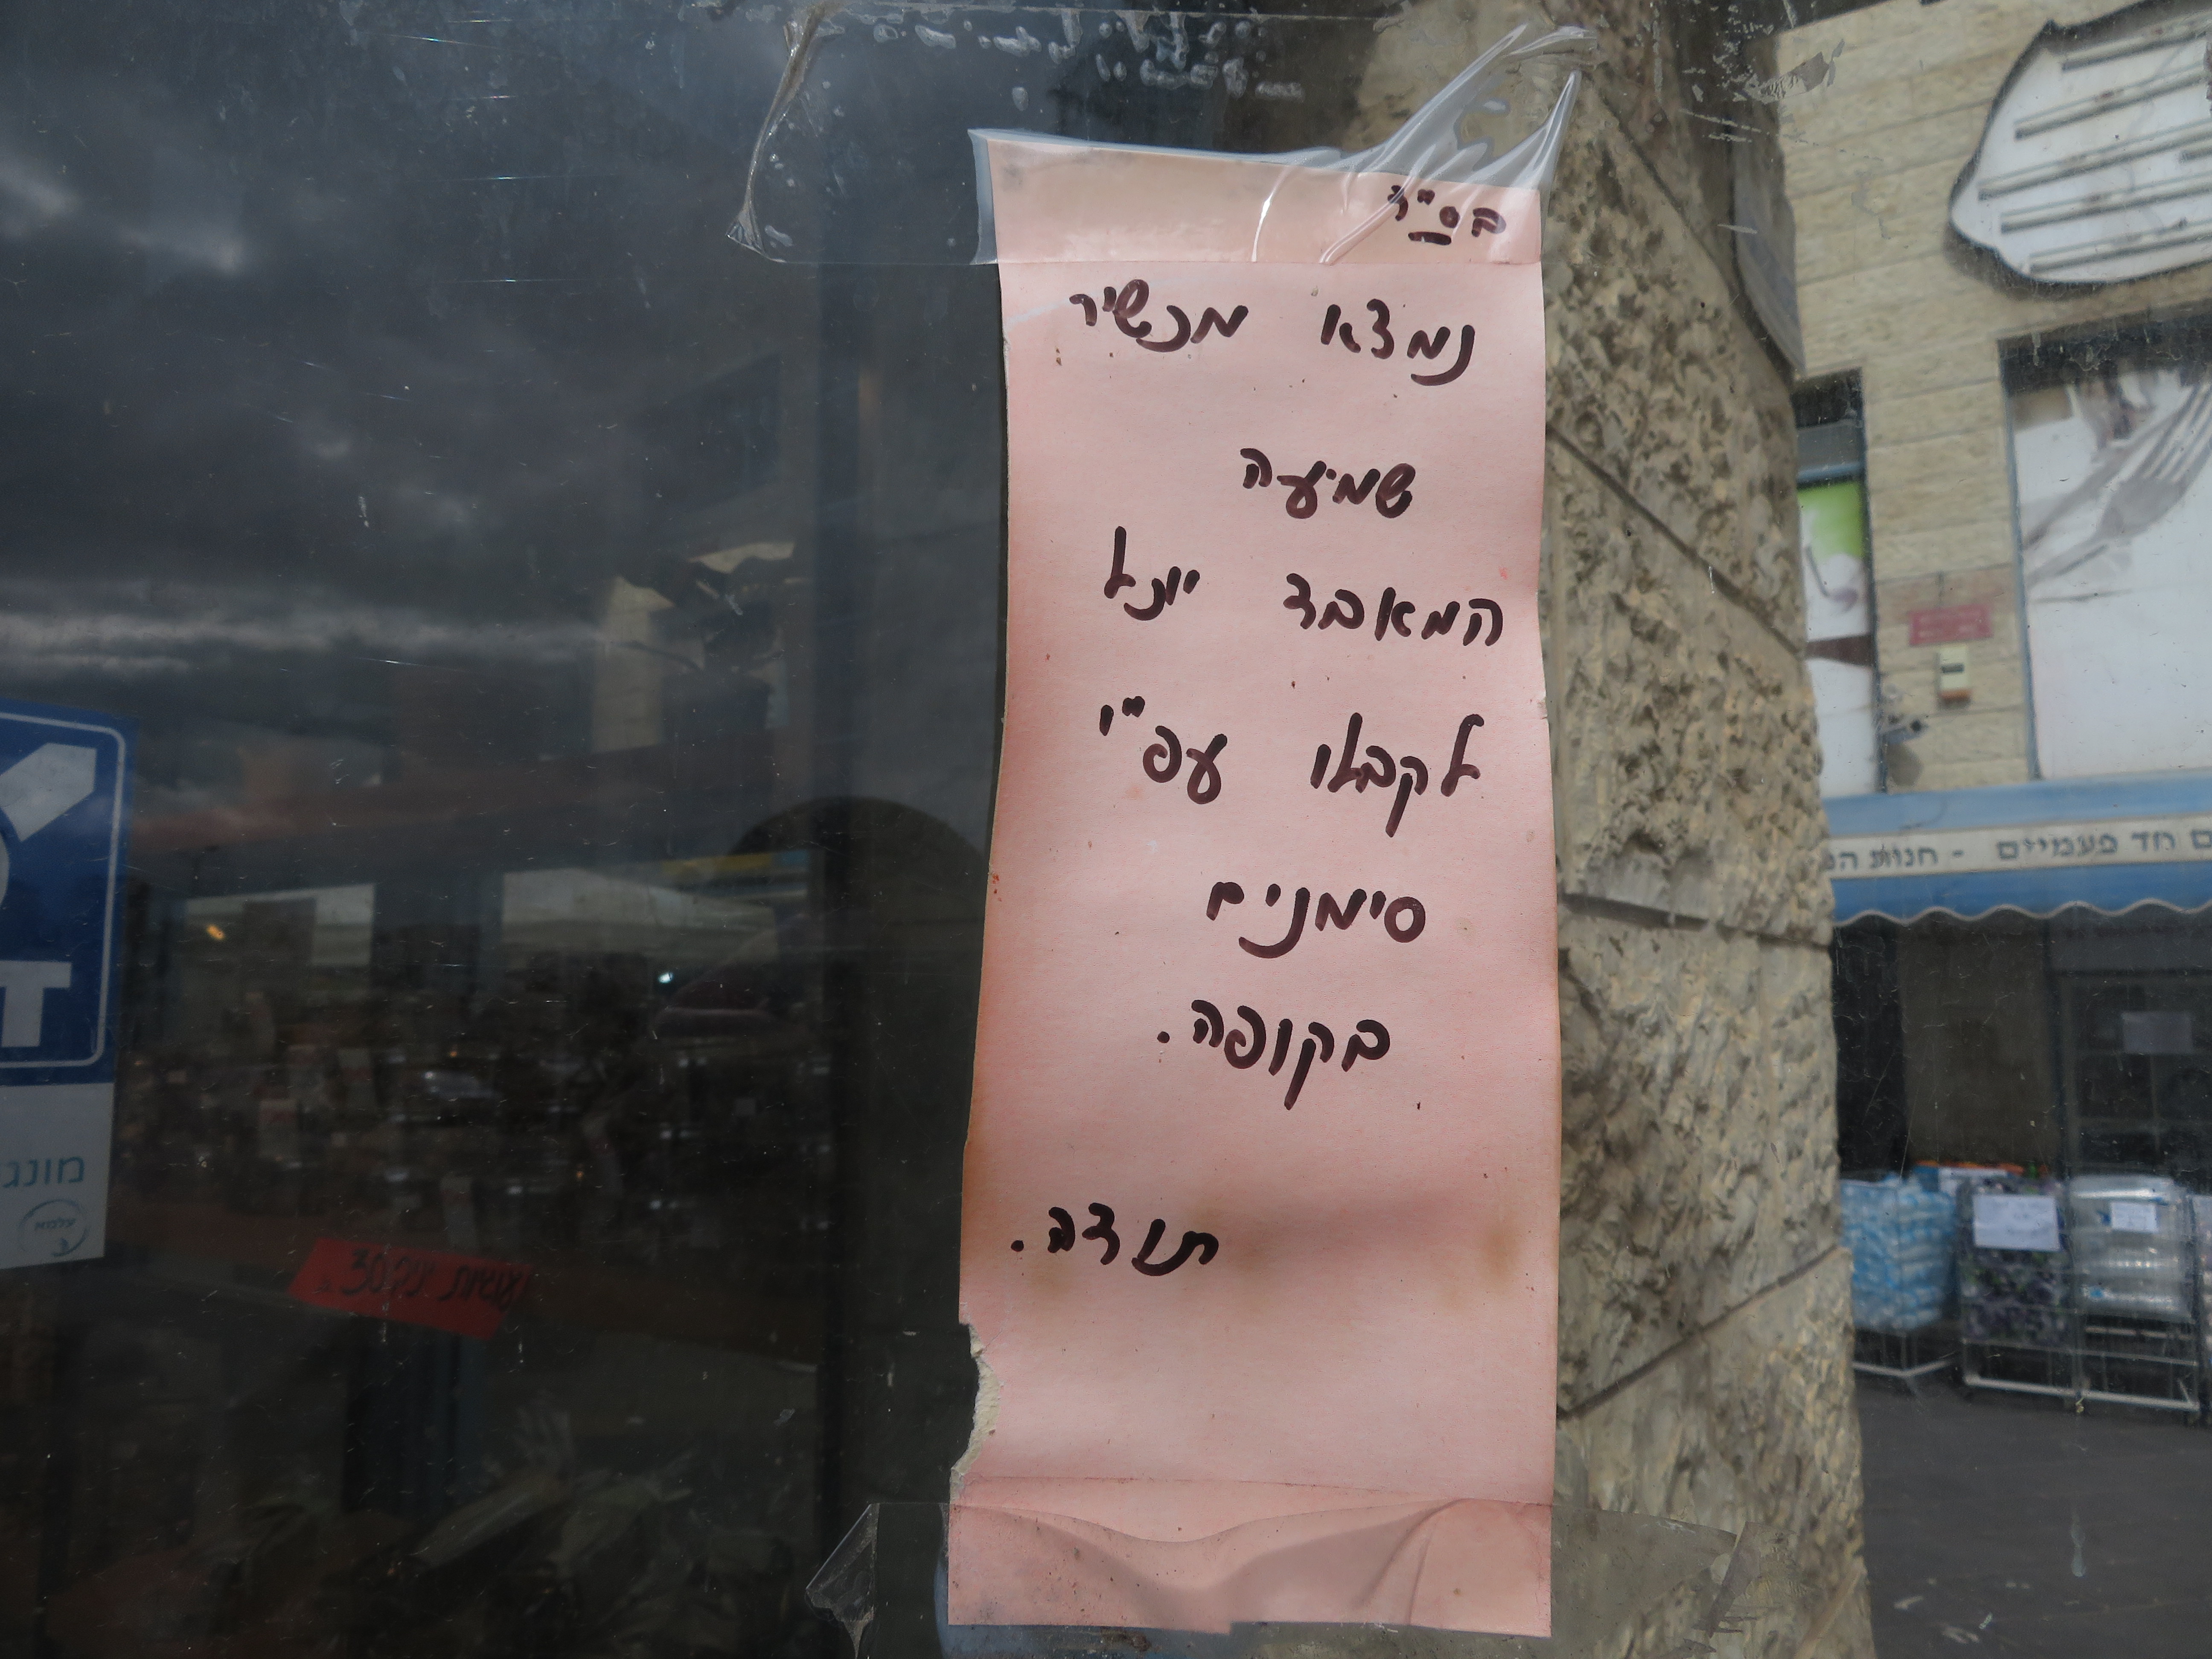 בס"ד
נמצא מכשיר
שמיעה
המאבד יוכל
לקבלו עפ"י
סימנים
בקופה.
תודה.
חד פעמיים - חנות
מונג
עלמא
עוגיות 30